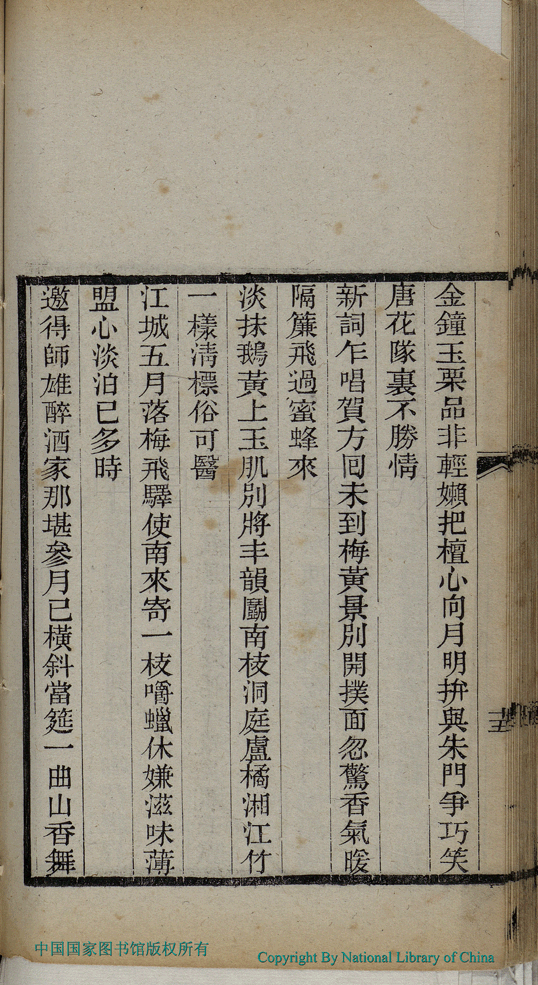 金鐘玉栗品非輕嬾把檀心向月明拚與朱門爭巧笑
唐花隊裏不勝情
新詞乍唱賀方回未到梅黃景別開撲面忽驚香氣暖
隔簾飛過蜜蜂來
淡抹鵝黃上玉肌別將丰韻鬭南枝洞庭盧橘湘江竹
一樣淸標俗可醫
江城五月落梅飛驛使南來寄一枝嚼蠟休嫌滋味薄
盟心淡泊已多時
邀得師雄醉酒家那堪參月已橫斜當筵一曲山香舞
十五
中国国家图书馆版权所有
Copyright By National Library of China